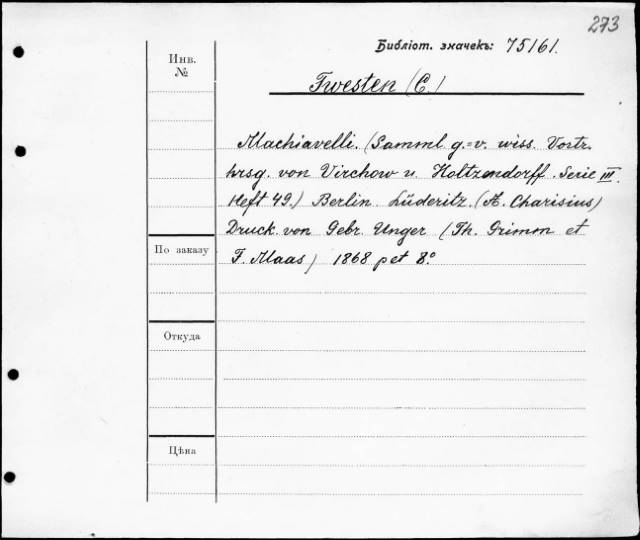 273
Библіот. значекъ: 75161.
Инв.
№
Twesten (C.)
Machiavelli. (Samml g.=v. wiss. Vortr.
hrsg. von Virchow u. Holtzendorff. Serie III.
Heft 49.) Berlin. Lüderitz. (A. Charisius)
Druck. von Gebr. Unger (Th. Grimm et
По заказу
F. Maas) 1868 pet 8.º
Откуда
Цѣна